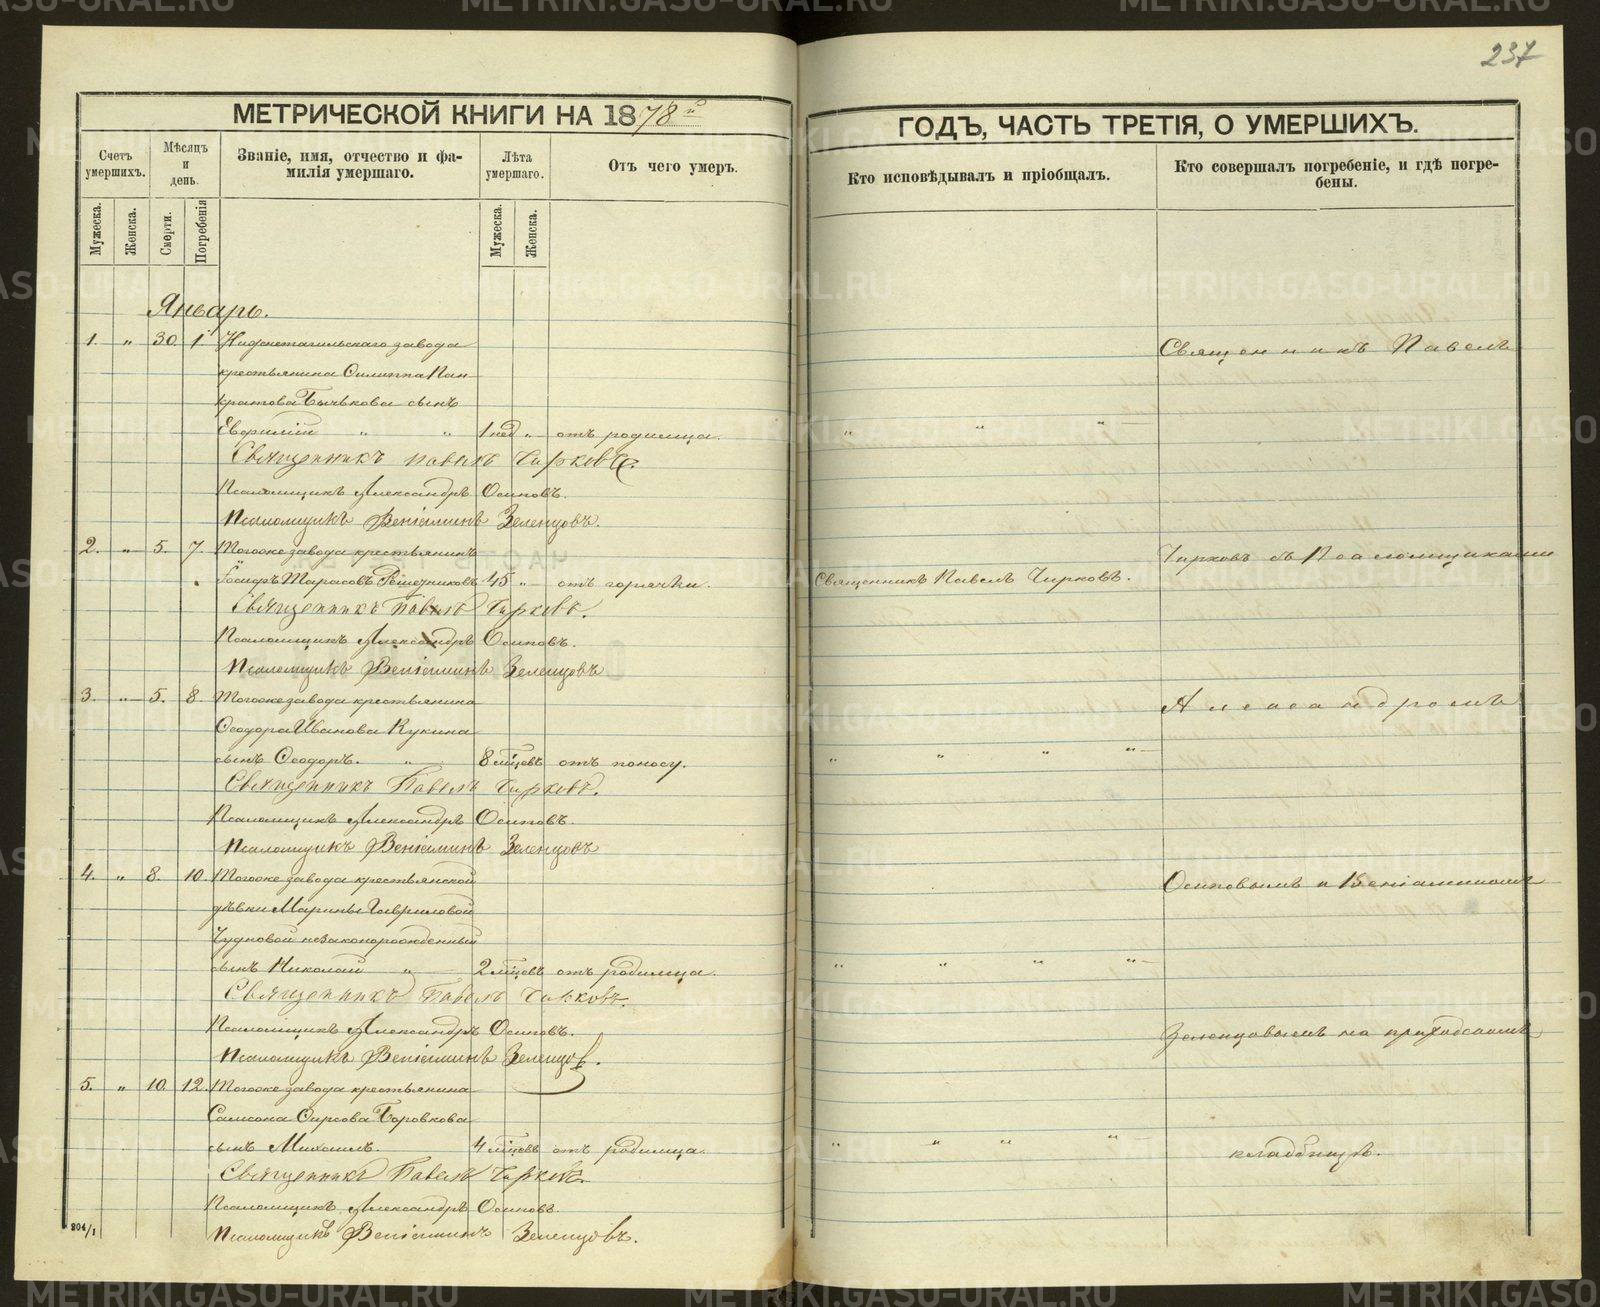 237
МЕТРИЧЕСКОЙ КНИГИ НА 1878й
ГОДЪ, ЧАСТЬ ТРЕТІЯ, О УМЕРШИХЪ.
Счетъ умершихъ.
Мѣсяцъ и день.
Званіе, имя, отчество и фа-
милія умершаго.
Лѣта умершаго.
Отъ чего умеръ.
Кто исповѣдывалъ и пріобщалъ.
Кто совершалъ погребеніе, и гдѣ погре-
бены.
Мужеска.
Женска.
Смерти.
Погребенія
Мужеска.
Женска.
Январь.
1. " 30. 1. Нижнетагильскаго завода
крестьянина Филиппа Пан
кратова Бычькова сынъ
Евфимій " " 1 нед " отъ родимца. " " "
Священникъ Павелъ Чирковъ.
Псаломщикъ Александръ Осиповъ.
Псаломщикъ Веніаминъ Зеленцовъ.
2. " 5. 7. Тогоже завода крестьянинъ
Тарасовъ Рѣшетниковъ 45 " отъ горячки. Священникъ Павелъ Чирковъ.
Священникъ Павелъ Чирковъ.
Псаломщикъ Александръ Осиповъ.
Псаломщикъ Веніаминъ Зеленцовъ
3. " 5. 8. Тогоже завода крестьянина
Ѳеодора Иванова Кукина
сынъ Ѳеодоръ. " 8 мѣсцевъ отъ поносу. " " " "
Священникъ Павелъ Чирковъ.
Псаломщикъ Александръ Осиповъ.
Псаломщикъ Веніаминъ Зеленцовъ
4. " 8. 10. Тогоже завода крестьянской
дѣвки Марины Гавриловой
Чудновой незаконорожденный
сынъ Николай " 2 мѣсцевъ отъ родимца. " " " "
Священникъ Павелъ Чирковъ.
Псаломщикъ Александръ Осиповъ.
Псаломщикъ Веніаминъ Зеленцовъ.
5. " 10. 12. Тогоже завода крестьянина
Самсона Фирсова Боровкова
сынъ Михаилъ. 4 мѣсцевъ отъ родимца. " " " "
Священникъ Павелъ Чирковъ.
Псаломщикъ Александръ Осиповъ.
Псаломщикъ Веніаминъ Зеленцовъ.
Священникъ Павелъ
Чирковъ съ Псаломщиками
Александромъ
Осиповымъ и Веніаминомъ
Зеленцовымъ на приходскомъ
кладбищѣ.
804/1
METRIKI.GASO-URAL.RU